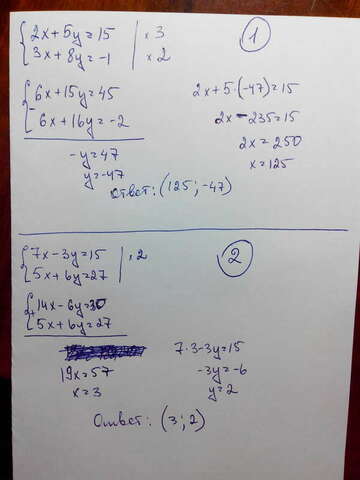 2x+5y=15 | ×3
3x+8y=-1 | ×2
1
6x+15y=45
6x+16y=-2
-y=47
y=-47
2x+5·(-47)=15
2x-235=15
2x=250
x=125
Ответ: (125; -47)
7x-3y=15 | ·2
5x+6y=27
2
14x-6y=30
5x+6y=27
19x=57
x=3
7·3-3y=15
-3y=-6
y=2
Ответ: (3; 2)